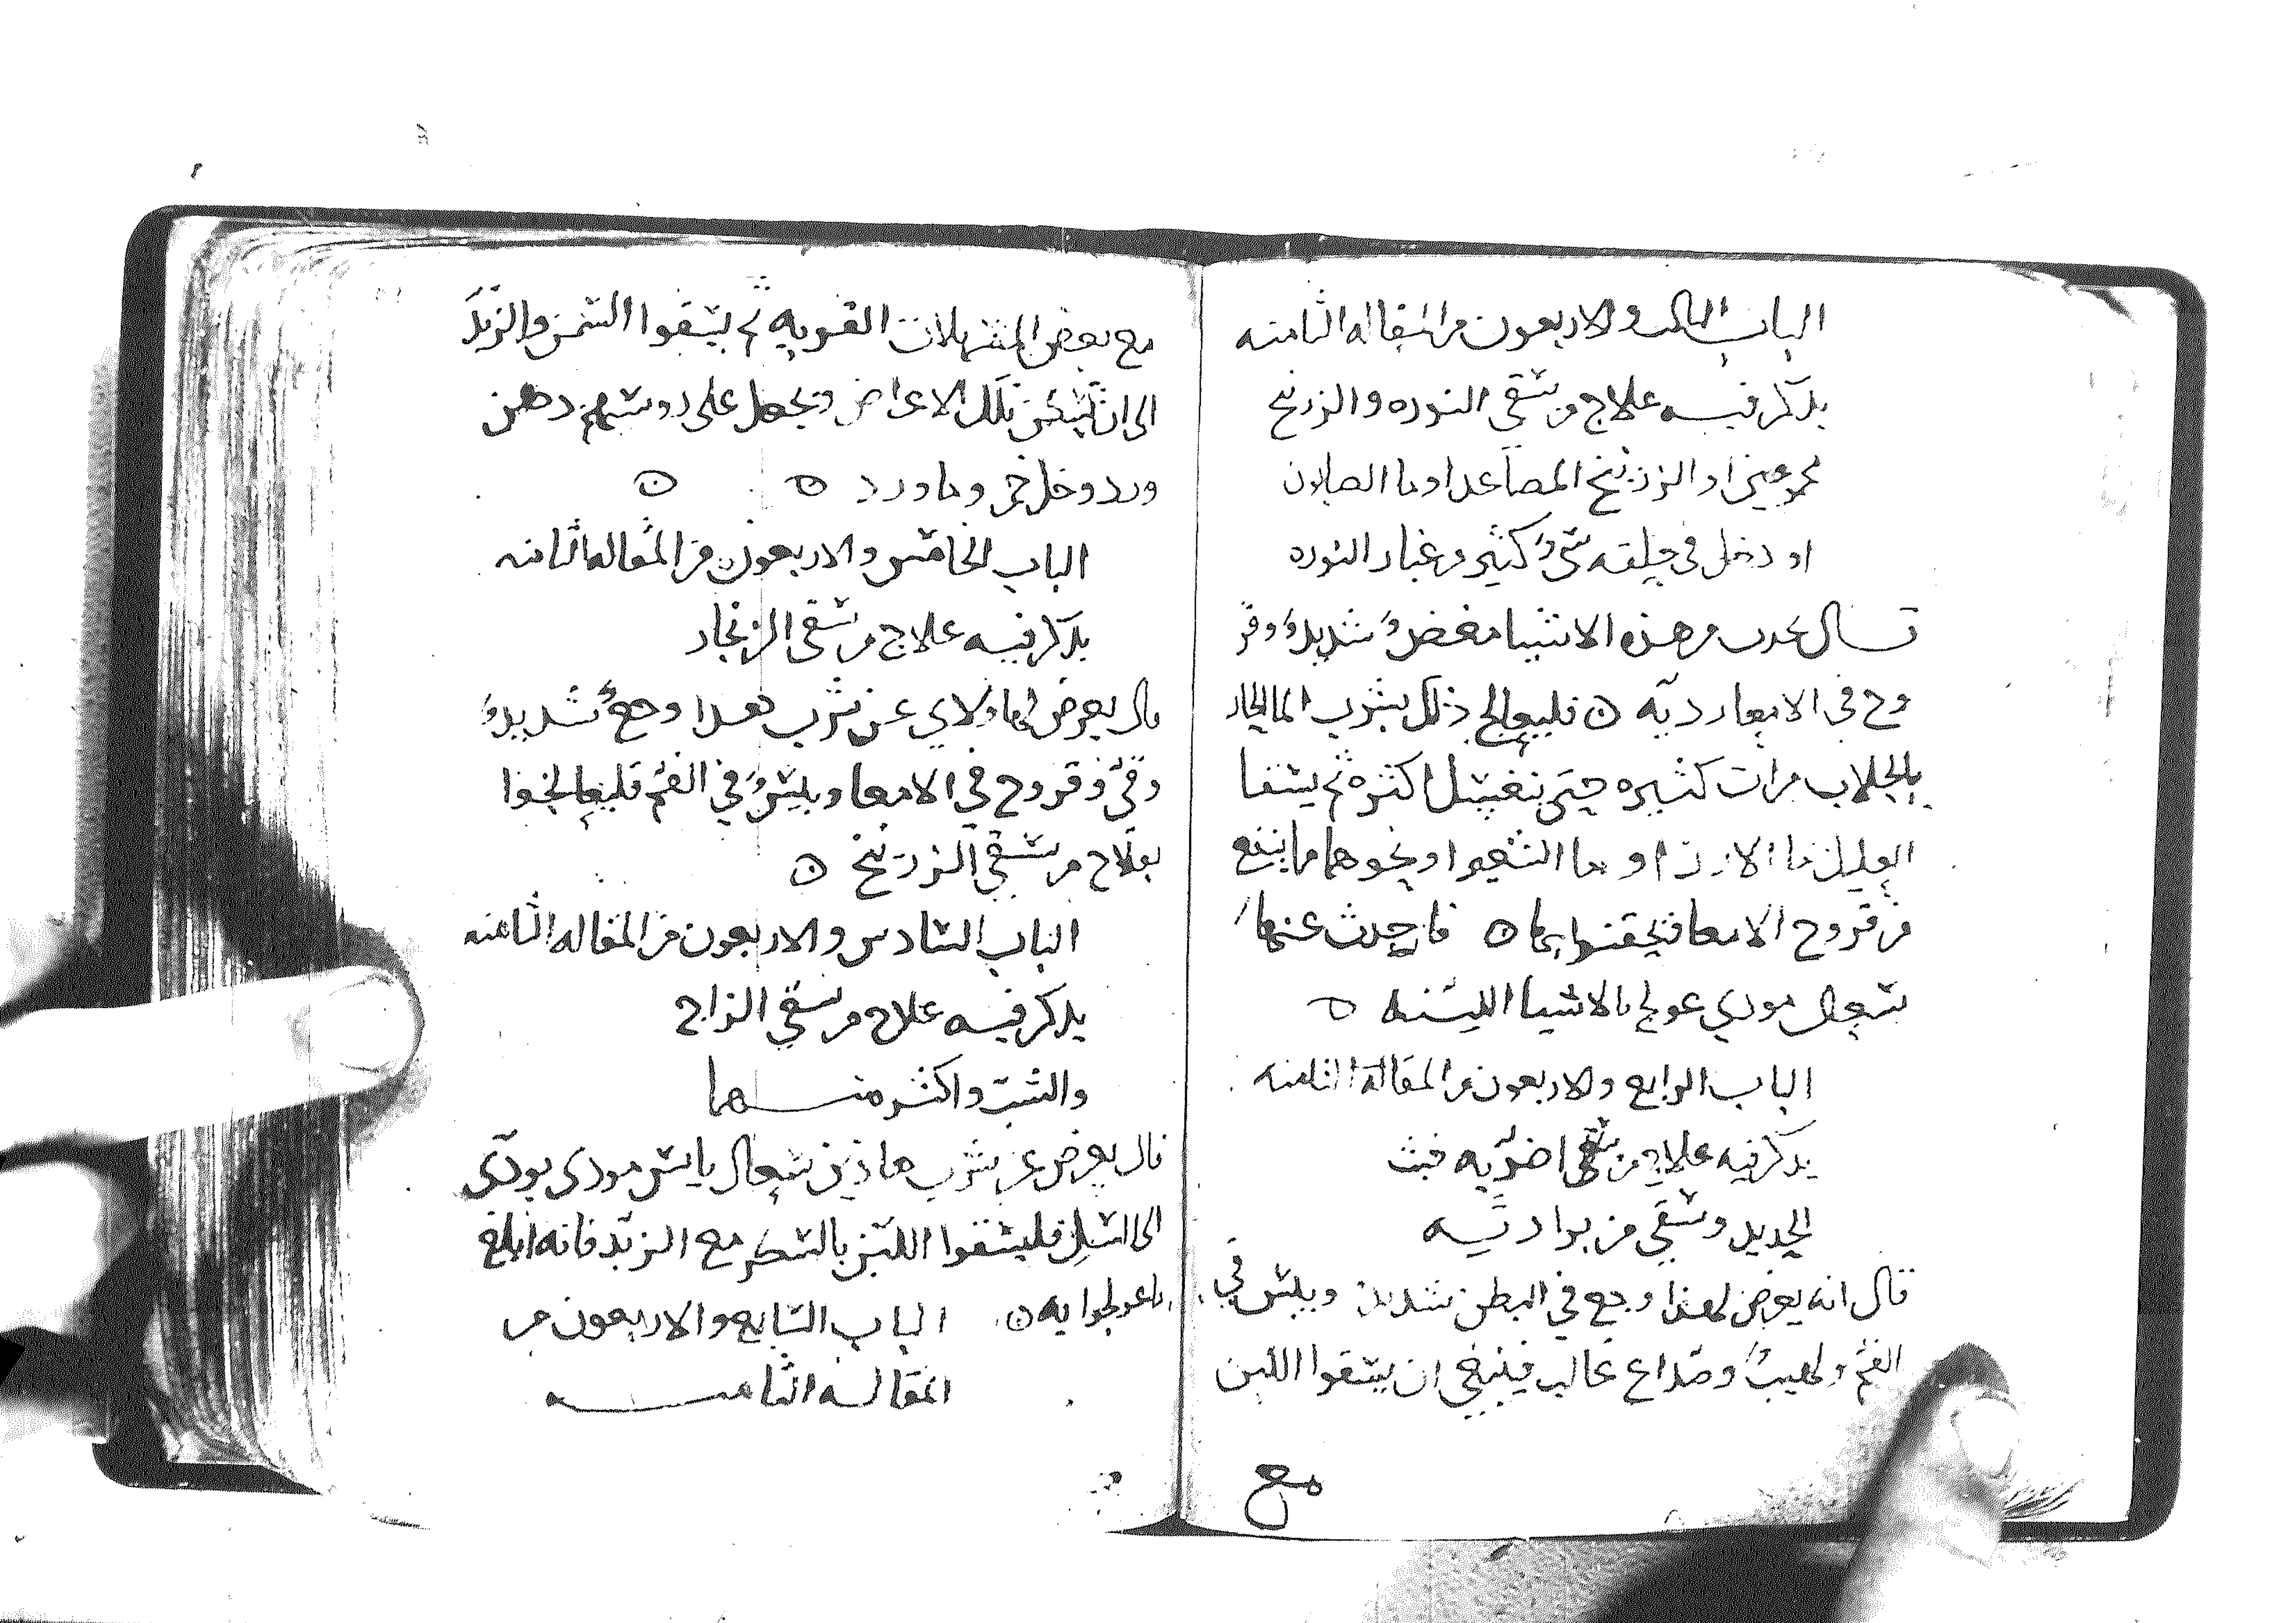 الباب الثالث والاربعون من المقاله الثامنه
يذكر فيه علاج من سقى النوره والزرنيخ
مجموعين او الزرنيخ المصاعد او ما الصابون
او دخل في حلقه شيء كثير من غبار النوره
قال يحدث من هذه الاشيا مغص شديد وقر
وح في الامعا رديه ن فليعالج ذلك بشرب الما الحار
بالجلاب مرات كثيره حتى ينغسل اكثره ثم يسقا
العليل ما الارز او ما الشعير او نحوهما مما ينفع
من قروح الامعا فيحقن بها ن فان حدث عنها
سعال موذي عولج بالاشيا اللينه ن
الباب الرابع والاربعون من المقاله الثامنه
يذكر فيه علاج من سقى اضر به خبث
الحديد وسقي من برادته
قال انه يعرض لهذا وجع في البطن شديد ويبس في
الفم ولهيب وصداع غالب فينبغي ان يسقوا اللبن
مع
مع بعض المسهلات القويه ثم يسقوا السمن والزبد
الى ان تسكن تلك الاعراض ويجعل على روسهم دهن
ورد وخل خمر وما ورد ن ن
الباب الخامس والاربعون من المقاله الثامنه
يذكر فيه علاج من سقى الزنجار
قال يعرض لهاولاي عن شرب هذا وجع شديد
وقيء وقروح في الامعا ويبس في الفم فليعالجوا
بعلاج من سقي الزرنيخ ن
الباب السادس والاربعون من المقاله الثامنه
يذكر فيه علاج من سقي الزاج
والشب واكثر منهما
قال يعرض عن شرب هاذين سعال يابس موذى يودى
الى السل فليسقوا اللبن بالسكر مع الزبد فانه ابلغ
ما عولجوا به ن الباب السابع والاربعون من
المقاله الثامنه